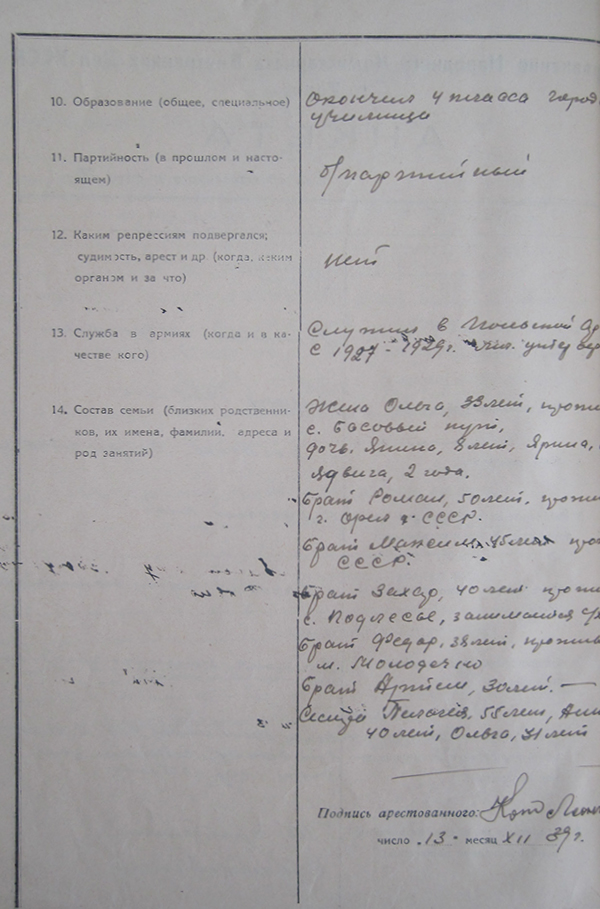 10. Образование (общее, специальное)
Окончил 4 класса город.
училища
11. Партийность (в прошлом и насто-
ящем)
б/партийный
12. Каким репрессиям подвергался;
судимость, арест и др. (когда, каким
органом и за что)
нет
13. Служба в армиях (когда и в ка-
честве кого)
Служил в Польской
с 1927-1929г.
14. Состав семьи (близких родственни-
ков, их имена, фамилии, адреса и
род занятий)
Жена Ольга, 33 лет,
с. Басовый кут,
дочь Янина, 8 лет, Ярина,
Ядвига, 2 года.
Брат Роман, 50 лет,
г. Орел СССР.
Брат Максим 45 лет
СССР.
Брат Захар, 40 лет
с. Подлесье, занимается
Брат Федор, 38 лет,
м. Молодечно
Брат Артем, 30 лет. —
Сестра Пелагея, 55 лет,
40 лет, Ольга, 31 лет
Подпись арестованного:
число 13 месяц XII 39 г.